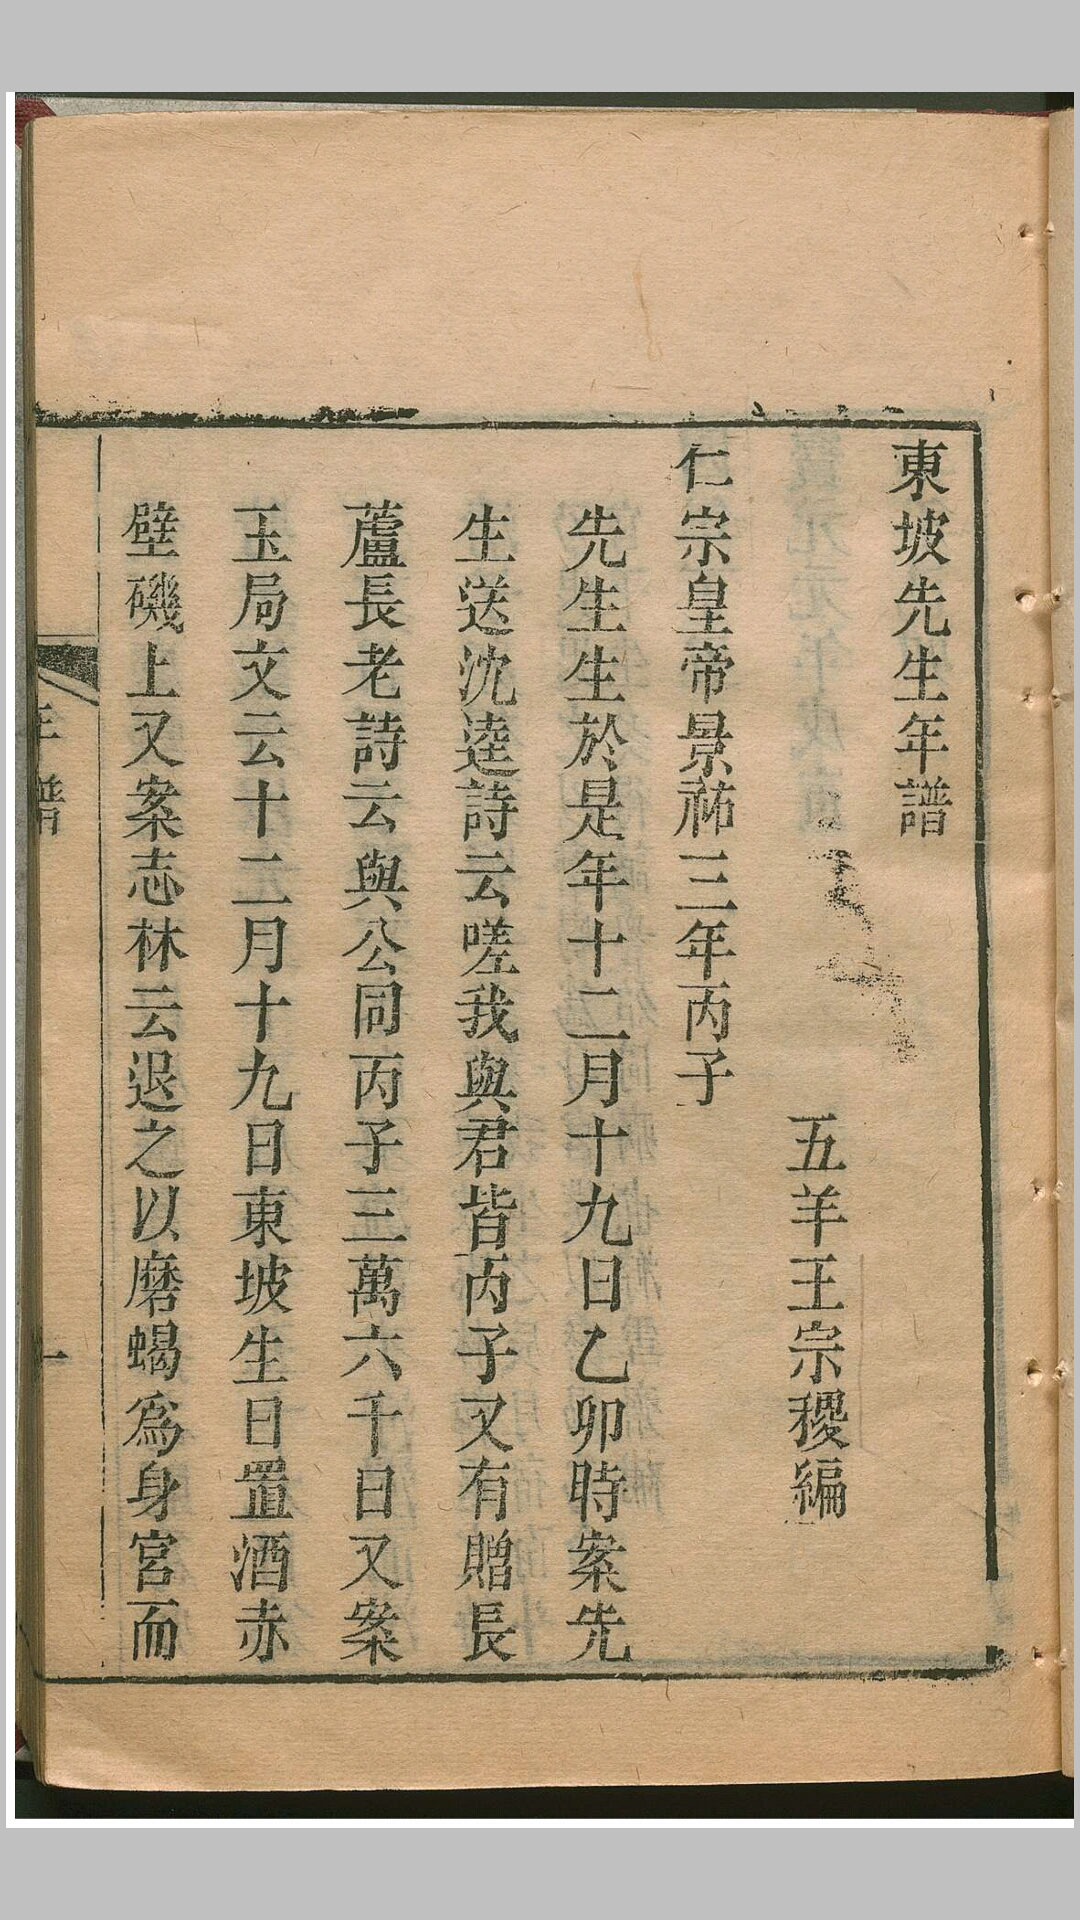 東坡先生年譜
五羊王宗稷編
仁宗皇帝景祐三年丙子
先生生於是年十二月十九日乙卯時案先
生送沈逵詩云嗟我與君皆丙子又有贈長
蘆長老詩云與公同丙子三萬六千日又案
玉局文云十二月十九日東坡生日置酒赤
壁磯上又案志林云退之以磨蝎爲身宮而
年譜
一